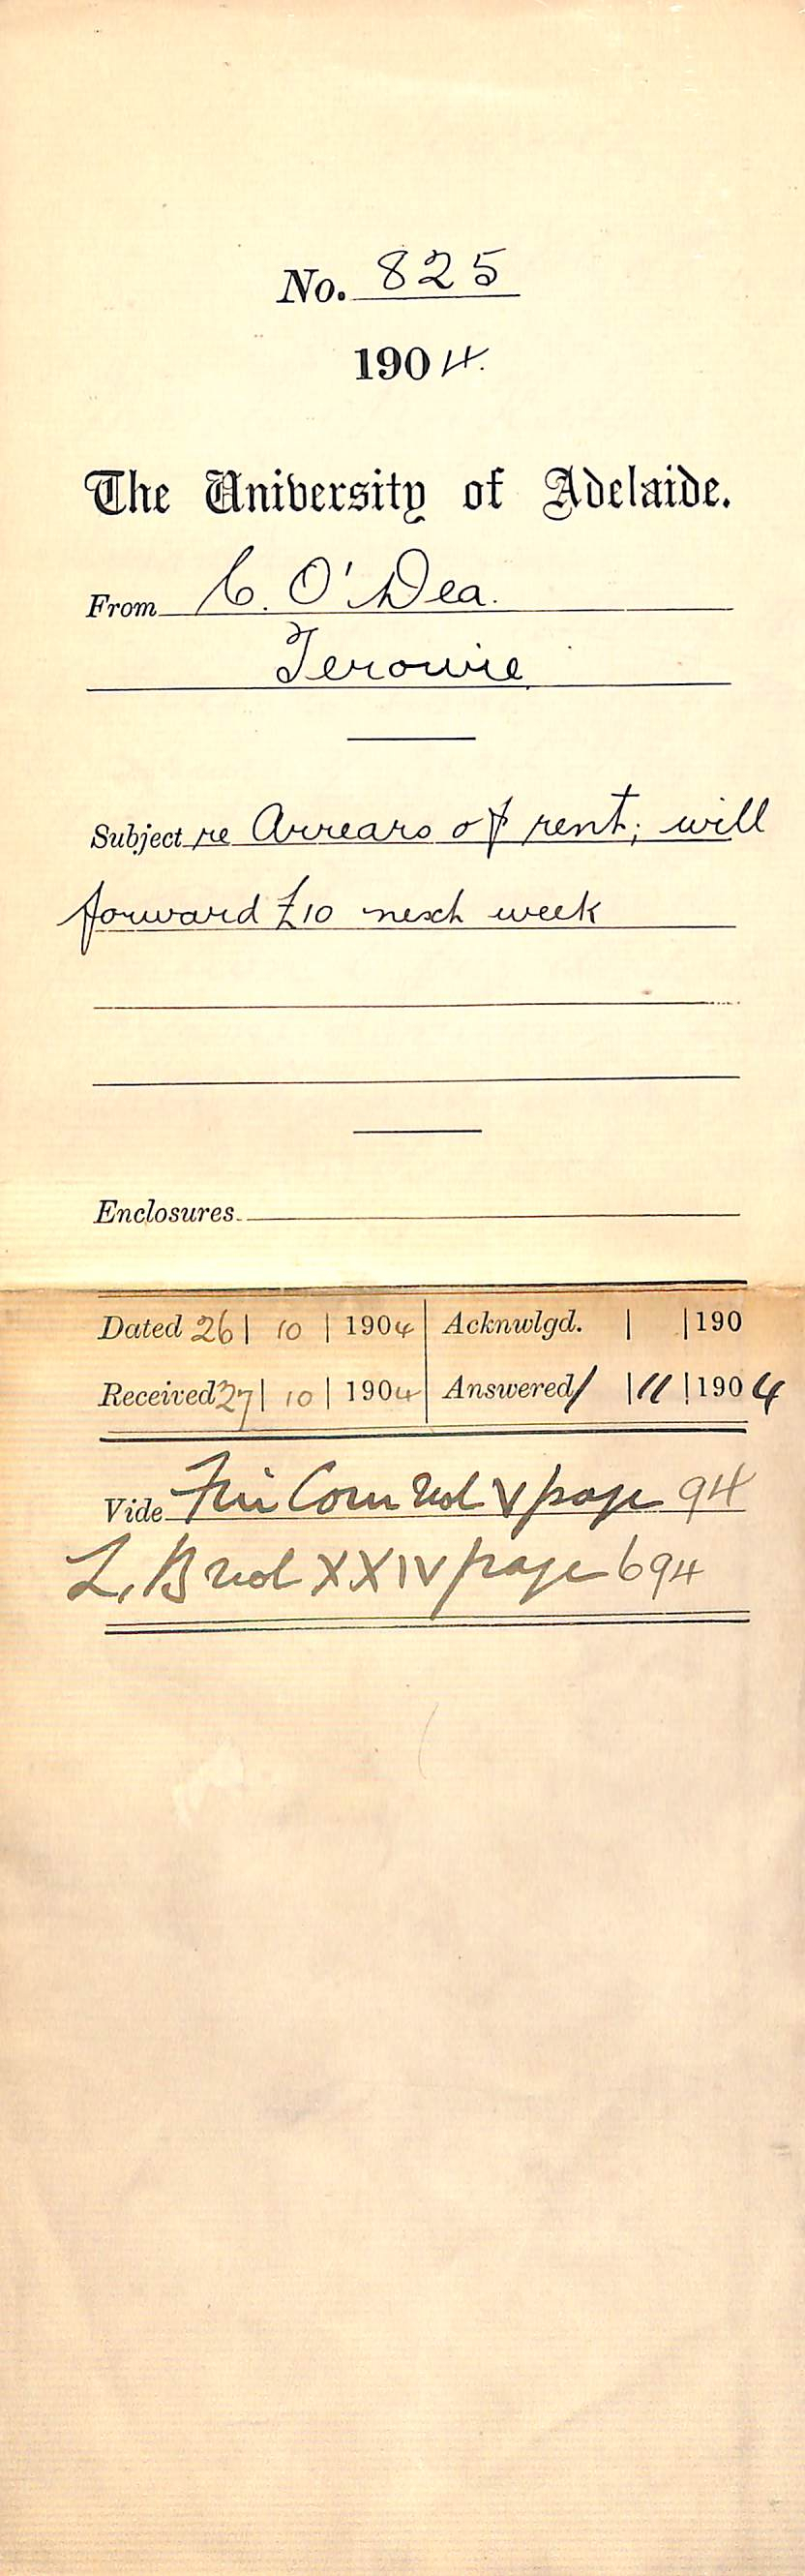 No. 825
1904.
The University of Adelaide.
From C. O'Dea.
Terowie
Subject re Arrears of rent; will
forward £10 next week
Enclosures.
Dated 26 | 10 | 1904 Acknwlgd. | | 190
Received 27 | 10 | 1904 Answered 1 | 11 | 1904
Vide Fin Com vol V page 94
L, B vol XXIV page 694